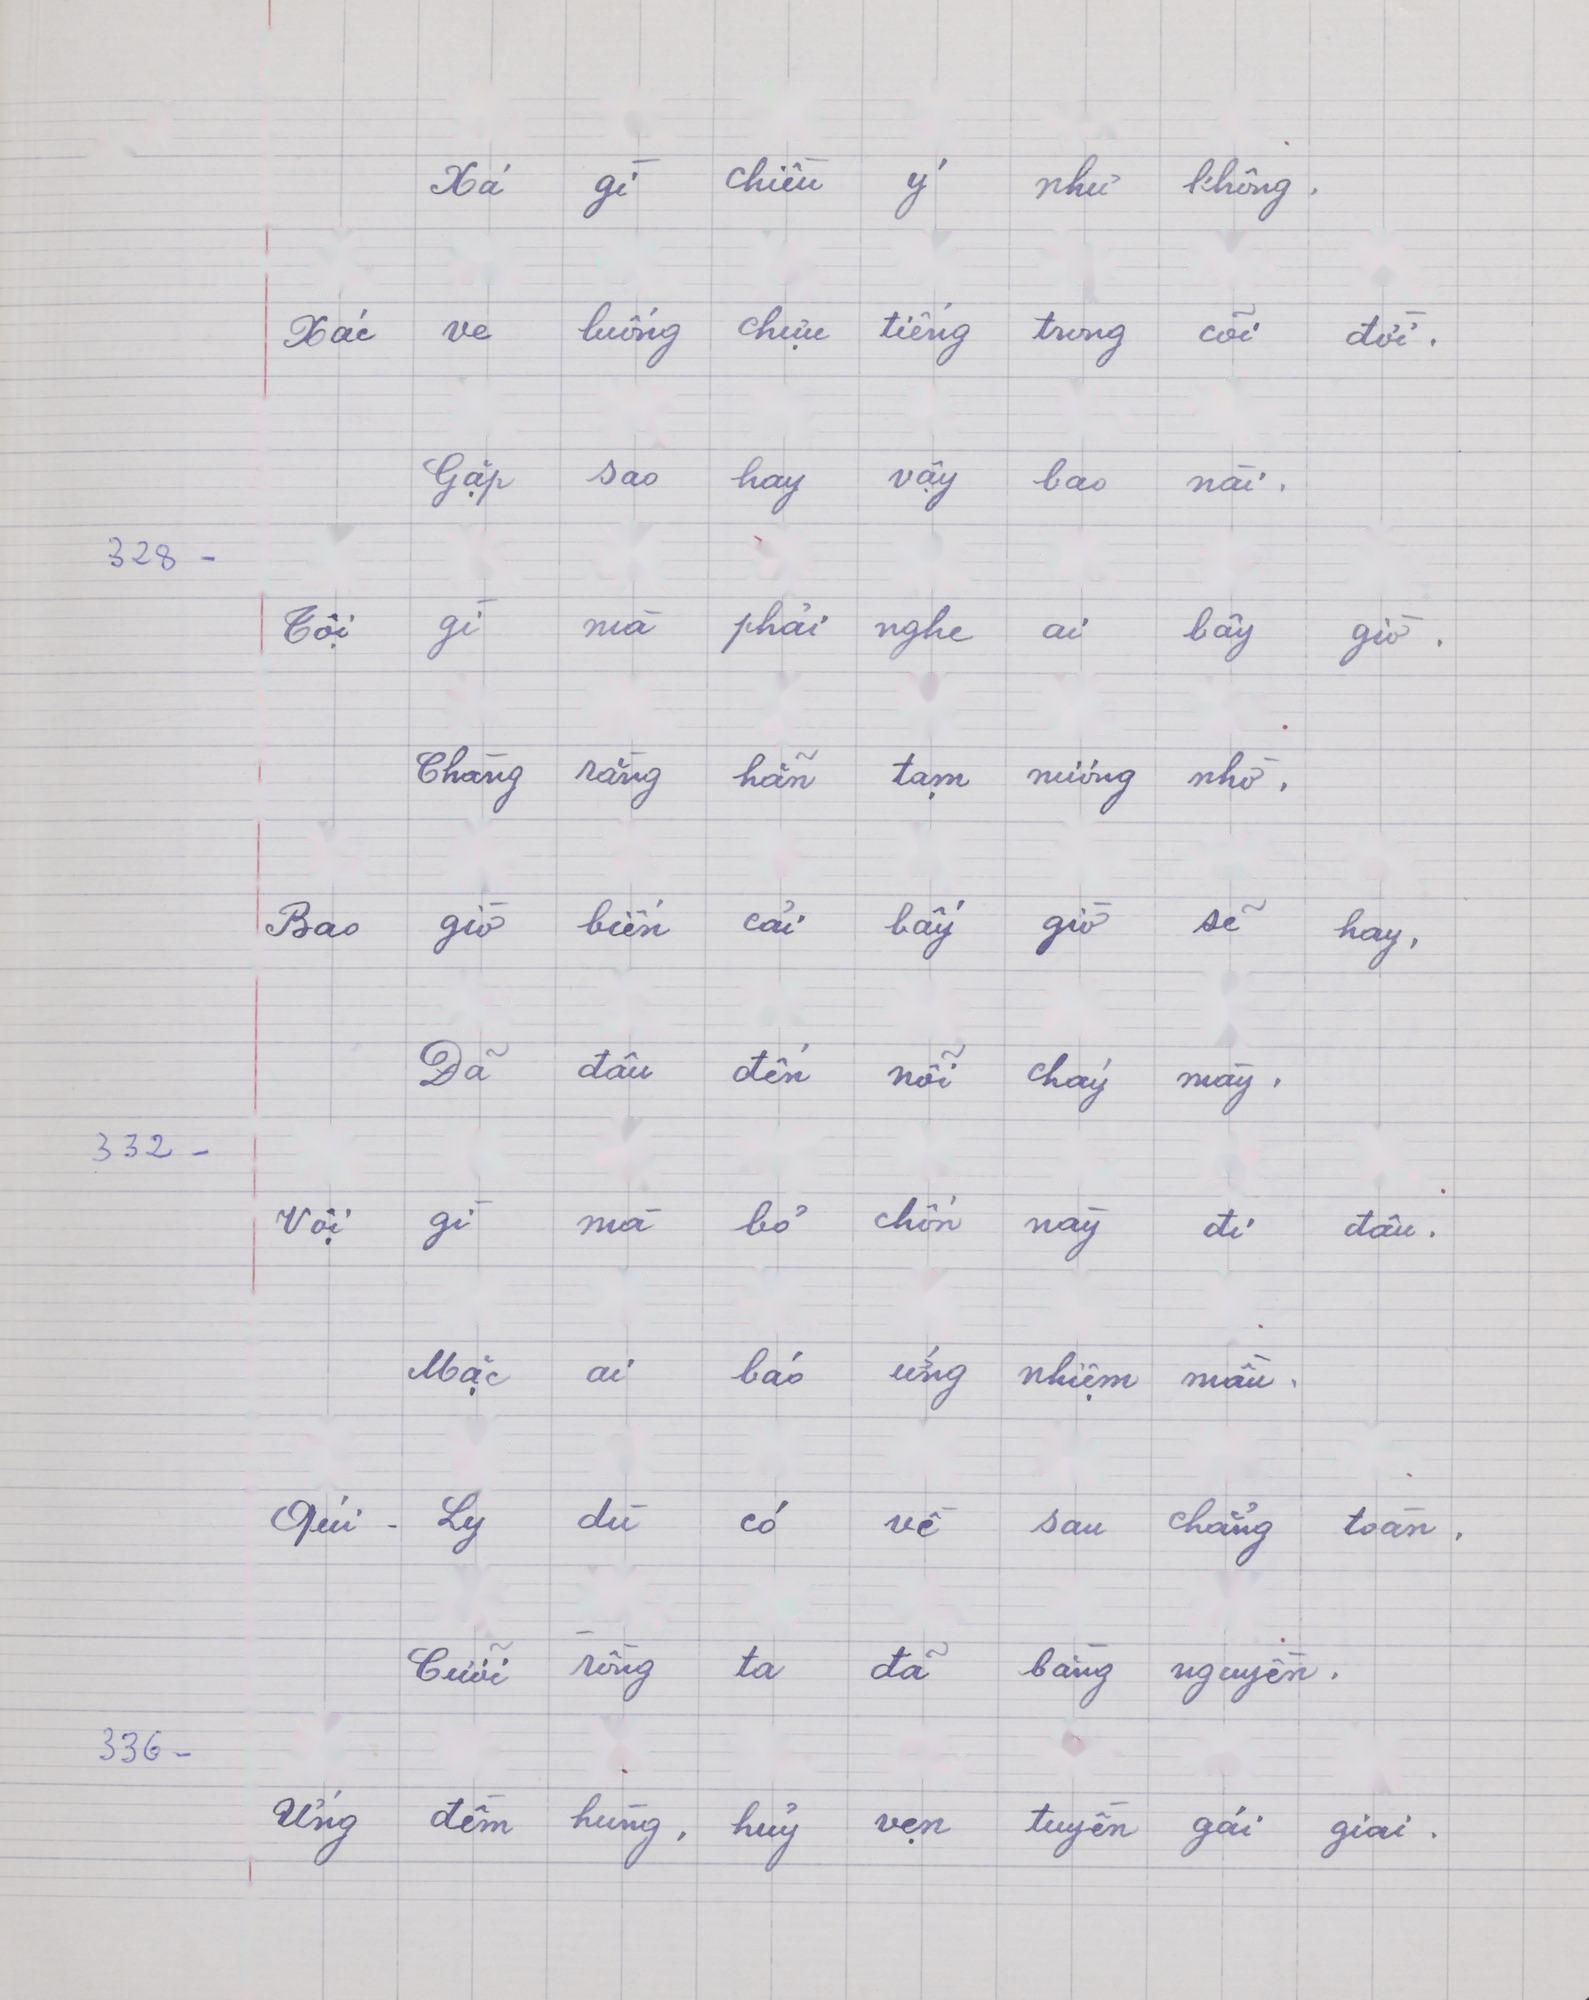 Xá gì chiều ý như không.
Xác ve luống chịu tiếng trong cõi đời.
Gặp sao hay vậy bao nài.
328 -
Tội gì mà phải nghe ai bây giờ.
Chàng rằng hẵn tạm nương nhờ,
Bao giờ biến cải bấy giờ sẽ hay,
Dã đâu đến nỗi cháy mày,
332 -
Vội gì mà bỏ chốn này đi đâu.
Mặc ai báo ứng nhiệm mầu.
Qúi - Ly dù có về sau chẳng toàn,
Cưỡi rồng ta đã bằng nguyền.
336 -
Ứng đềm hùng, huỷ vẹn tuyền gái giai.